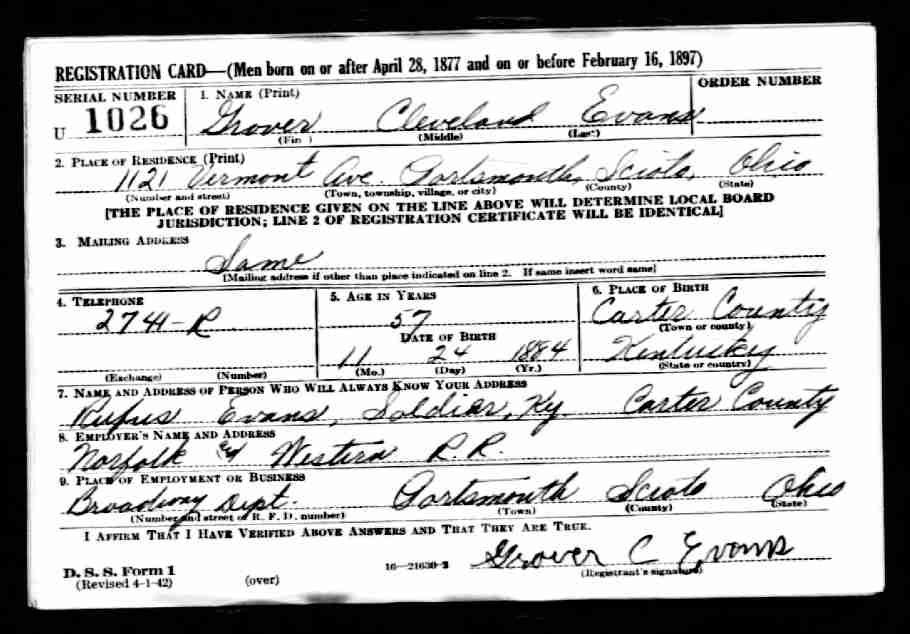 REGISTRATION CARD—(Men born on or after April 28, 1877 and on or before February 16, 1897)
SERIAL NUMBER 1. NAME (Print) ORDER NUMBER
U 1026 Grover Cleveland Evans
(First) (Middle) (Last)
2. PLACE OF RESIDENCE (Print)
1121 Vermont Ave. Portsmouth, Scioto, Ohio
(Number and street) (Town, township, village, or city) (County) (State)
[THE PLACE OF RESIDENCE GIVEN ON THE LINE ABOVE WILL DETERMINE LOCAL BOARD
JURISDICTION; LINE 2 OF REGISTRATION CERTIFICATE WILL BE IDENTICAL]
3. MAILING ADDRESS
Same
[Mailing address if other than place indicated on line 2. If same insert word same]
4. TELEPHONE 5. AGE IN YEARS 6. PLACE OF BIRTH
2741-R 57 Carter County
DATE OF BIRTH (Town or county)
11 24 1884 Kentuskey
(Exchange) (Number) (Mo.) (Day) (Yr.) (State or country)
7. NAME AND ADDRESS OF PERSON WHO WILL ALWAYS KNOW YOUR ADDRESS
Rufus Evans, Soldiar, Ky. Carter County
8. EMPLOYER'S NAME AND ADDRESS
Norfolk & Western R.R.
9. PLACE OF EMPLOYMENT OR BUSINESS
Broadway Dept. Portsmouth Scioto Ohio
(Number and street or R. F. D. number) (Town) (County) (State)
I AFFIRM THAT I HAVE VERIFIED ABOVE ANSWERS AND THAT THEY ARE TRUE.
Grover C Evans
D. S. S. Form 1 16—21630-2 (Registrant's signature)
(Revised 4-1-42) (over)